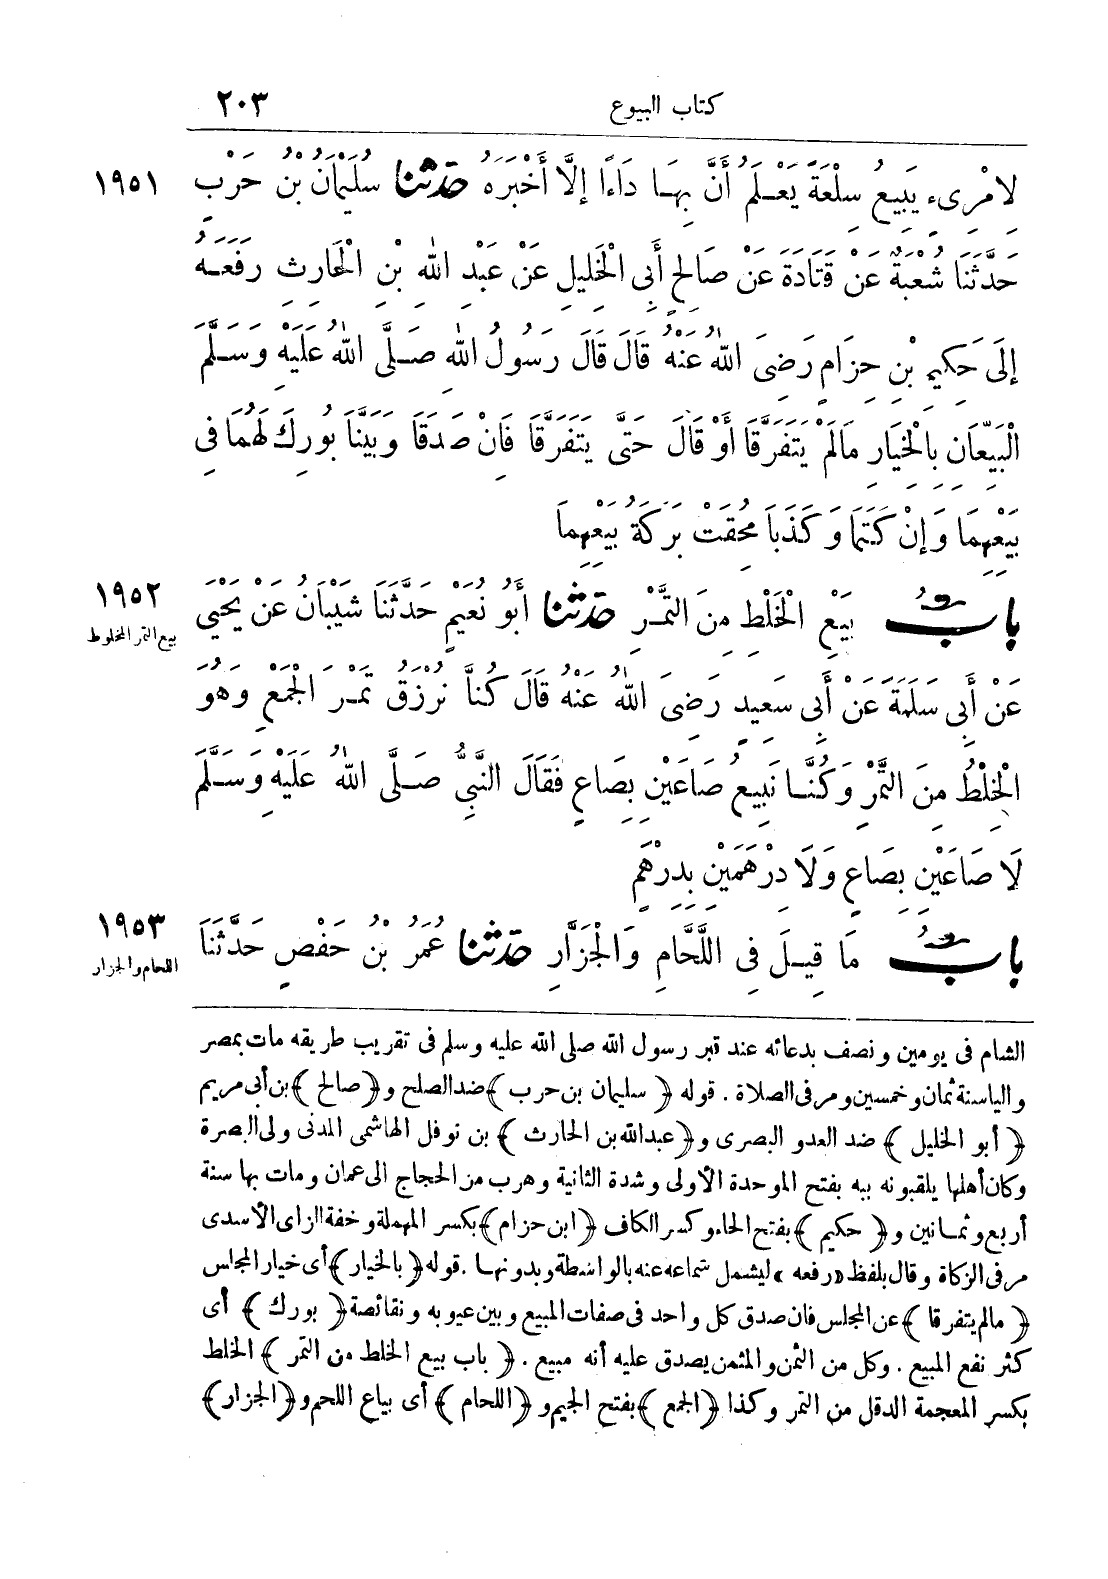 كتاب البيوع ٢٠٣
لِامْرِىءٍ يَبِيعُ سِلْعَةً يَعْلَمُ أَنَّ بِهَا دَاءً إِلَّا أَخْبَرَهُ حَدَّثَنَا سُلَيْمَانُ بْنُ حَرْبٍ ١٩٥١
حَدَّثَنَا شُعْبَةُ عَنْ قَتَادَةَ عَنْ صَالِحٍ أَبِى الْخَلِيلِ عَنْ عَبْدِ اللهِ بْنِ الْحَارِثِ رَفَعَهُ
إِلَى حَكِيمِ بْنِ حِزَامٍ رَضِىَ اللهُ عَنْهُ قَالَ قَالَ رَسُولُ اللهِ صَلَّى اللهُ عَلَيْهِ وَسَلَّمَ
الْبَيِّعَانِ بِالْخِيَارِ مَالَمْ يَتَفَرَّقَا أَوْ قَالَ حَتَّى يَتَفَرَّقَا فَانْ صَدَقَا وَبَيَّنَا بُورِكَ لَهُمَا فِى
بَيْعِهِمَا وَإِنْ كَتَمَا وَكَذَبَا مُحِقَتْ بَرَكَةُ بَيْعِهِمَا
بابُ بَيْعِ الْخَلْطِ مِنَ التَّمْرِ حَدَّثَنَا أَبُو نُعَيْمٍ حَدَّثَنَا شَيْبَانُ عَنْ يَحْيَى ١٩٥٢
بيع التمر المخلوط
عَنْ أَبِى سَلَمَةَ عَنْ أَبِى سَعِيدٍ رَضِىَ اللهُ عَنْهُ قَالَ كُنَّا نُرْزَقُ تَمْرَ الْجَمْعِ وَهُوَ
الْخِلْطُ مِنَ التَّمْرِ وَكُنَّا نَبِيعُ صَاعَيْنِ بِصَاعٍ فَقَالَ النَّبِىُّ صَلَّى اللهُ عَلَيْهِ وَسَلَّمَ
لَا صَاعَيْنِ بِصَاعٍ وَلَا دِرْهَمَيْنِ بِدِرْهَمٍ
بابُ مَا قِيلَ فِى اللَّحَّامِ وَالْجَزَّارِ حَدَّثَنَا عُمَرُ بْنُ حَفْصٍ حَدَّثَنَا ١٩٥٣
اللحام والجزار
الشام فى يومين ونصف بدعائه عند قبر رسول الله صلى الله عليه وسلم فى تقريب طريقه مات بمصر
والياسنة ثمان وخمسين ومر فى الصلاة . قوله ﴿ سليمان بن حرب ﴾ ضد الصلح و﴿ صالح ﴾ بن أبى مريم
﴿ أبو الخليل ﴾ ضد العدو البصرى و﴿ عبدالله بن الحارث ﴾ بن نوفل الهاشمى المدنى ولى البصرة
وكان أهلها يلقبونه ببه بفتح الموحدة الأولى وشدة الثانية وهرب من الحجاج الى عمان ومات بها سنة
أربع وثمانين و﴿ حكيم ﴾ بفتح الحاء وكسر الكاف ﴿ ابن حزام ﴾ بكسر المهملة وخفة الزاى الأسدى
مر فى الزكاة وقال بلفظ «رفعه» ليشمل سماعه عنه بالواسطة وبدونها . قوله ﴿ بالخيار ﴾ أى خيار المجلس
﴿ مالم يتفرقا ﴾ عن المجلس فان صدق كل واحد فى صفات المبيع وبين عيوبه ونقائصه ﴿ بورك ﴾ أى
كثر نفع المبيع . وكل من الثمن والمثمن يصدق عليه أنه مبيع . ﴿ باب بيع الخلط من التمر ﴾ الخلط
بكسر المعجمة الدقل من التمر وكذا ﴿ الجمع ﴾ بفتح الجيم و﴿ اللحام ﴾ أى بياع اللحم و﴿ الجزار ﴾